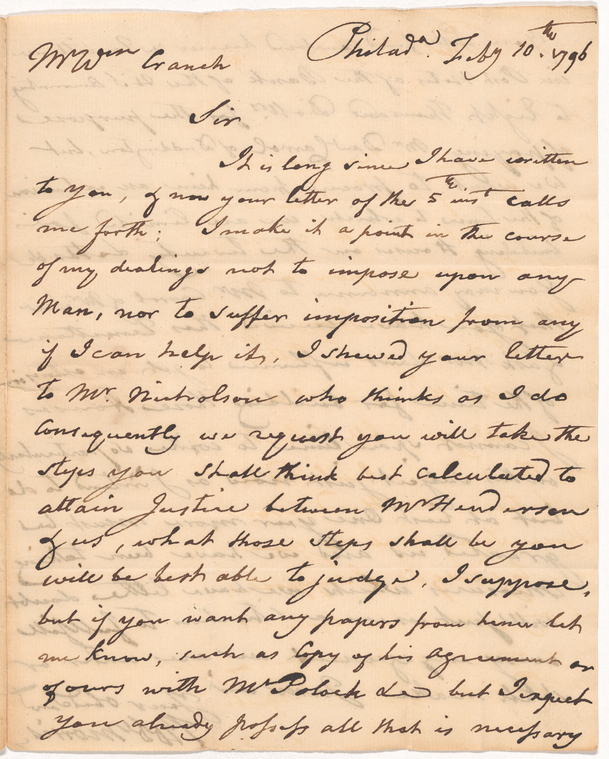 Philada. Feby 10.th 1796
Mr Wm Cranch
Sir
It is long since I have written
to you, & now your letter of the 5th inst calls
me forth; I make it a point in the course
of my dealings not to impose upon any
Man, nor to suffer imposition from any
if I can help it, I shewed your letter
to Mr. Nicholson who thinks as I do
Consequently we request you will take the
steps you shall think best calculated to
attain Justice between Mr Henderson
& us, what those steps shall be you
will be best able to judge, I suppose,
but if you want any papers from hence let
me know, such as Copy of his Agreement or
of ours with Mr Polock &c but I expect
you already possess all that is necessary